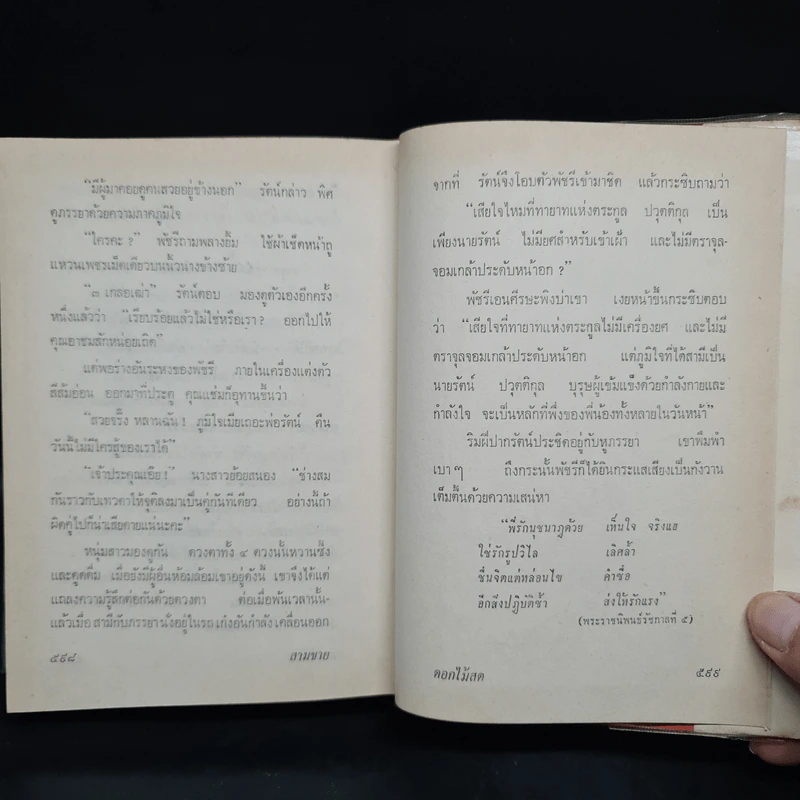 "มีผู้มาคอยดูคนสวยอยู่ข้างนอก" รัตน์กล่าว พิศ
ดูภรรยาด้วยความภาคภูมิใจ
"ใครคะ ?" พัชรีถามพลางยิ้ม ใช้ผ้าเช็ดหน้าถู
แหวนเพชรเม็ดเดียวบนนิ้วนางข้างซ้าย
"๓ เกลอเฒ่า" รัตน์ตอบ มองดูตัวเองอีกครั้ง
หนึ่งแล้วว่า "เรียบร้อยแล้วไม่ใช่หรือเรา? ออกไปให้
คุณอาชมสักหน่อยเถิด"
แต่พอร่างอันระหงของพัชรี ภายในเครื่องแต่งตัว
สีส้มอ่อน ออกมาที่ประตู คุณแช่มก็อุทานขึ้นว่า
"สวยจริ๊ง หลานฉัน! ภูมิใจเมียเถอะพ่อรัตน์ คืน
วันนี้ไม่มีใครสู้ของเราได้"
"เจ้าประคุณเอ๊ย!" นางสาวย้อยสนอง "ช่างสม
กันราวกับเทวดาให้จุติลงมาเป็นคู่กันทีเดียว อย่างนี้ถ้า
ผิดคู่ไปก็น่าเสียดายแน่นะคะ"
หนุ่มสาวมองดูกัน ดวงตาทั้ง ๔ ดวงนั้นหวานซึ้ง
และดูดดื่ม เมื่อยังมีผู้อื่นห้อมล้อมเขาอยู่ดังนี้ เขาจึงได้แต่
แถลงความรู้สึกต่อกันด้วยดวงตา ต่อเมื่อพ้นเวลานั้น-
แล้วเมื่อ สามีกับภรรยา นั่งอยู่ในรถ เก๋งอันกำลัง เคลื่อนออก
๕๙๘ สามชาย
จากที่ รัตน์จึงโอบตัวพัชรีเข้ามาชิด แล้วกระซิบถามว่า
"เสียใจไหมที่ทายาทแห่งตระกูล ปวุตติกุล เป็น
เพียงนายรัตน์ ไม่มียศสำหรับเข้าเฝ้า และไม่มีตราจุล-
จอมเกล้าประดับหน้าอก ?"
พัชรีเอนศีรษะพิงบ่าเขา เงยหน้าขึ้นกระซิบตอบ
ว่า "เสียใจที่ทายาทแห่งตระกูลไม่มีเครื่องยศ และไม่มี
ตราจุลจอมเกล้าประดับหน้าอก แต่ภูมิใจที่ได้สามีเป็น
นายรัตน์ ปวุตติกุล บุรุษผู้เข้มแข็งด้วยกำลังกายและ
กำลังใจ จะเป็นหลักที่พึ่งของพี่น้องทั้งหลายในวันหน้า"
ริมฝีปากรัตน์ประชิดอยู่กับหูภรรยา เขาพึมพำ
เบา ๆ ถึงกระนั้นพัชรีก็ได้ยินกระแสเสียงเป็นกังวาน
เต็มตื้นด้วยความเสน่หา
"พี่รักนุชนาฎด้วย เห็นใจ จริงแฮ
ใช่รักรูปวิไล เลิศล้ำ
ชื่นจิตแต่หล่อนไข คำซื่อ
อีกสิ่งปฏิบัติซ้ำ ส่งให้รักแรง"
(พระราชนิพนธ์รัชกาลที่ ๕)
ดอกไม้สด ๕๙๙